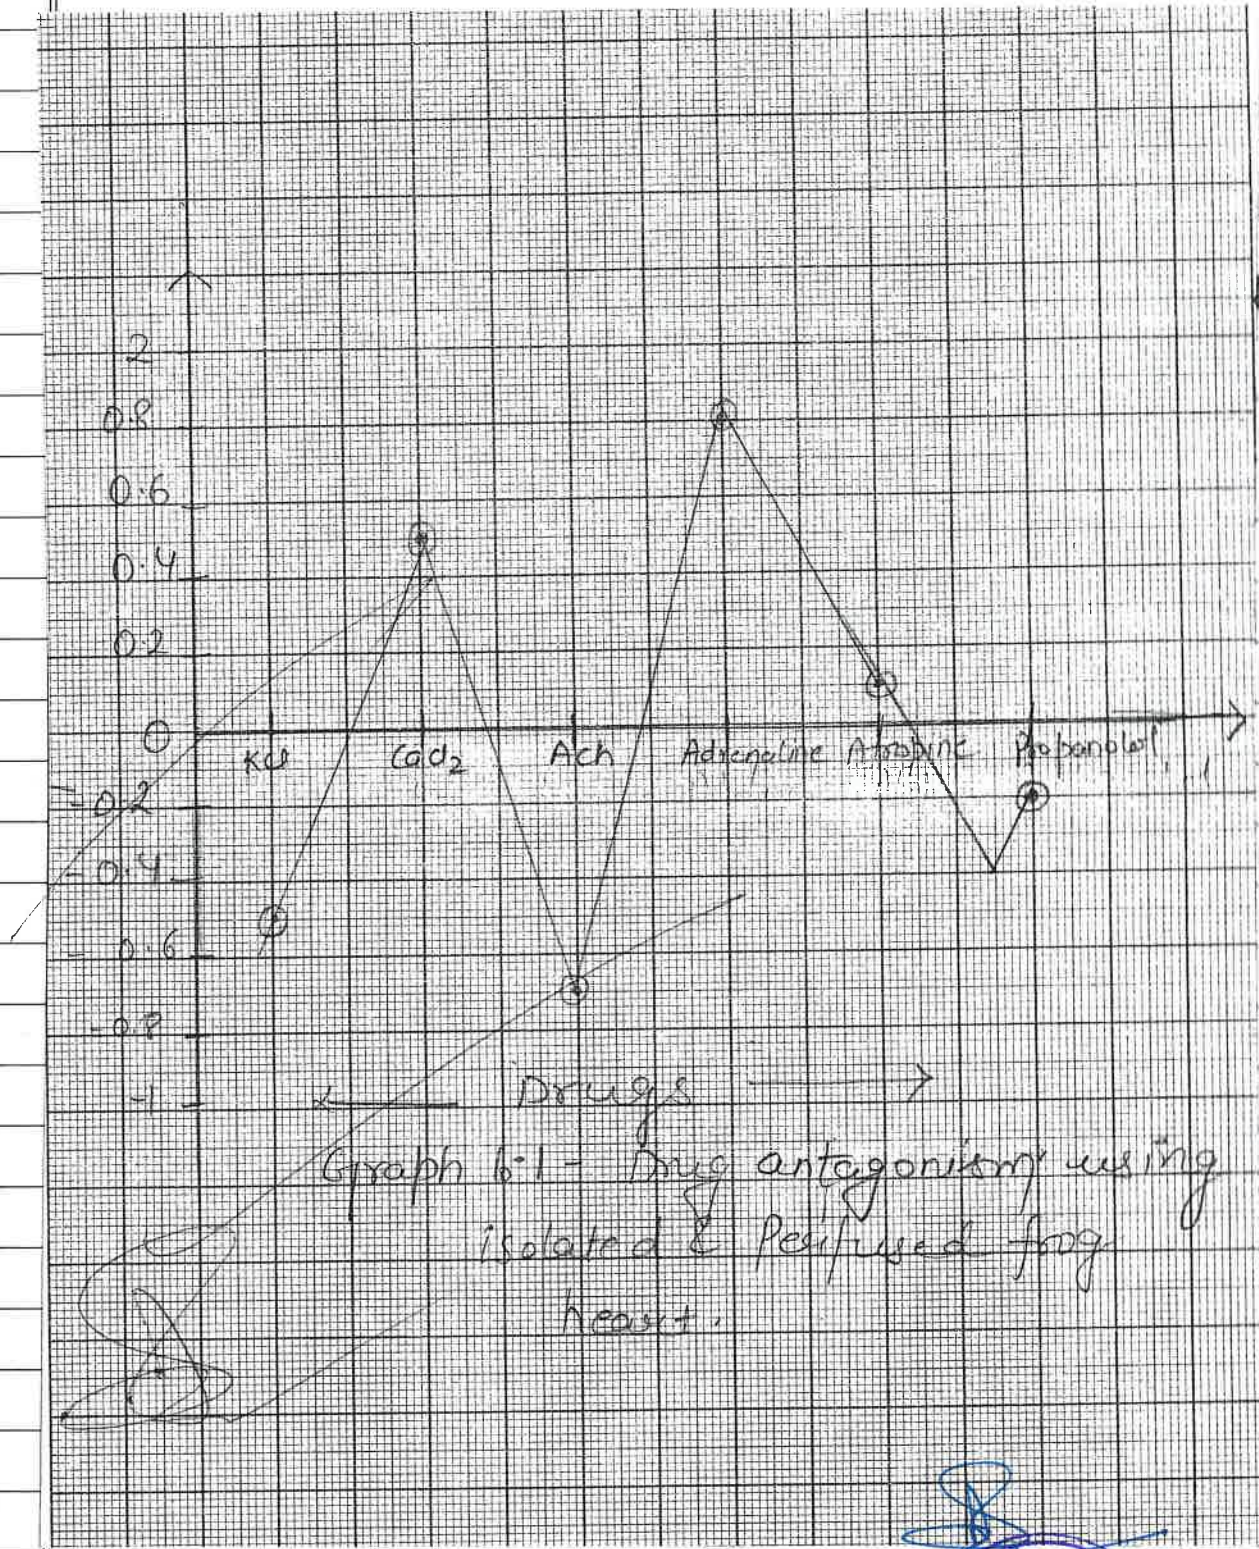 2
0.8
0.6
0.4
0.2
0
KCl CaCl2 Ach Adrenaline Atropine Propanolol
-0.2
-0.4
-0.6
-0.8
-1
Drugs
Graph 6.1 - Drug antagonism using
isolated & Perfused frog
heart.